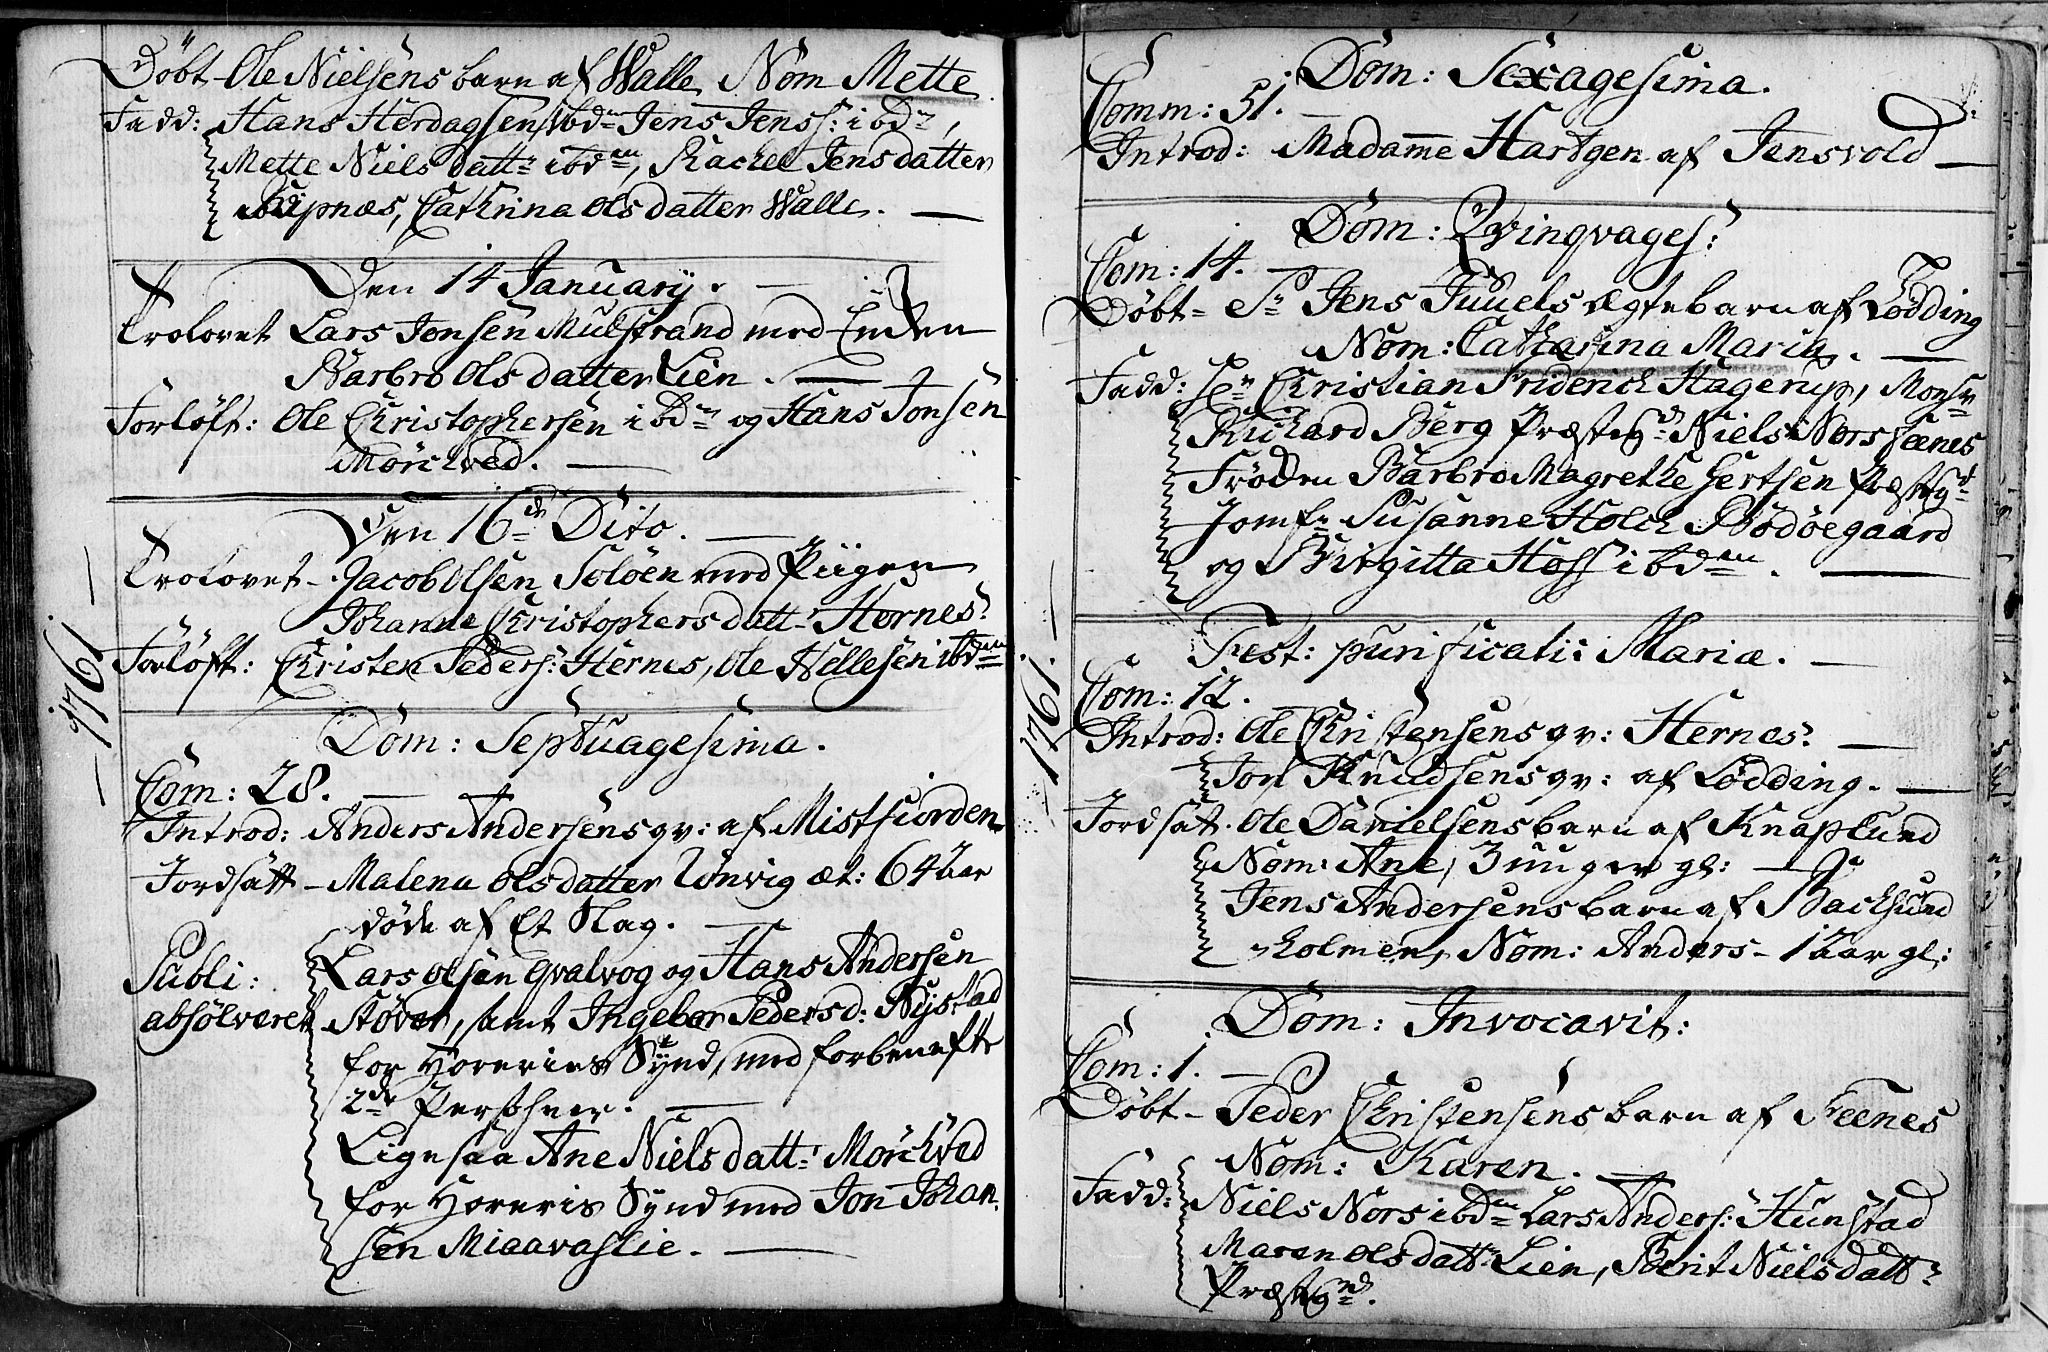 Döbt Ole Nielsens barn af Walle Nom Mette
Fadd: Hans Herdagsen ibdm Jens Jenss: ibdm,
Mette Niels dattr ibdem, Rachel Jensdatter
Bupnæs, Cathrina Olsdatter Walle.
Den 14 January.
Trolovet Lars Jonsen Mulstrand med Enken
Barbro Olsdatter Lien.
Forløft: Ole Christophersen ibdm og Hans Jonsen
Mörchved.
Den 16de Dito.
Trolovet - Jacob Olsen Soløen med Piigen
Johanne Christophersdatt: Hernes
Forløft: Christen Peders: Hernes, Ole Hellesen ibdem
1761
Dom: Septuagesima.
Com: 28.
Introd: Anders Andersens qv: af Mistfiorden
Jordsatt - Malena Olsdatter Lönvig æt: 64 Aar
döde af Et Slag.
Publi: Lars Olsen Qvalvog og Hans Andersen
absolveret Støver, samt Ingebor Pedersd: Nystad
for Horeries Synd, med forbenefte
2de Personer.
Ligesaa Ane Niels datt: Mörchved
for Horeris Synd med Jon Johan-
sen Miaavaslie.
Dom: Sexagesima.
Comm: 51.
Introd: Madame Hartgen af Jensvold
Dom: Qvinqvages:
Com: 14.
Döbt - Sr Jens Juuels ægte barn af Lödding
Nom: Catharina Maria.
Fadd: Hr Christian Friderich Hagerup, Monsr
Richard Berg Præstegd Niels Nors Feenes
Frøden Barbro Magrethe Gertsen Præstegd
Jomfr Susanne Holch Bodøegaard
og Birgitta Hoff ibdem.
Fest: purificati: Mariæ.
Com: 12.
Introd: Ole Christensens qv: Hernes.
Jon Knudsens qv: af Lödding.
1761.
Jordsat. Ole Danielsens barn af Knaplund
Nom: Ane, 3 uuger gl:
Jens Andersens barn af Backsund
holmen, Nom: Anders - 1 Aar gl:
Dom: Invocavit:
Com: 1.
Döbt - Peder Christensens barn af Feenes
Nom: Karen.
Fadd: Niels Nors ibdm Lars Anders: Hunstad
Maren Olsdattr Lien, Berit Nielsdattr
Præstegrd.